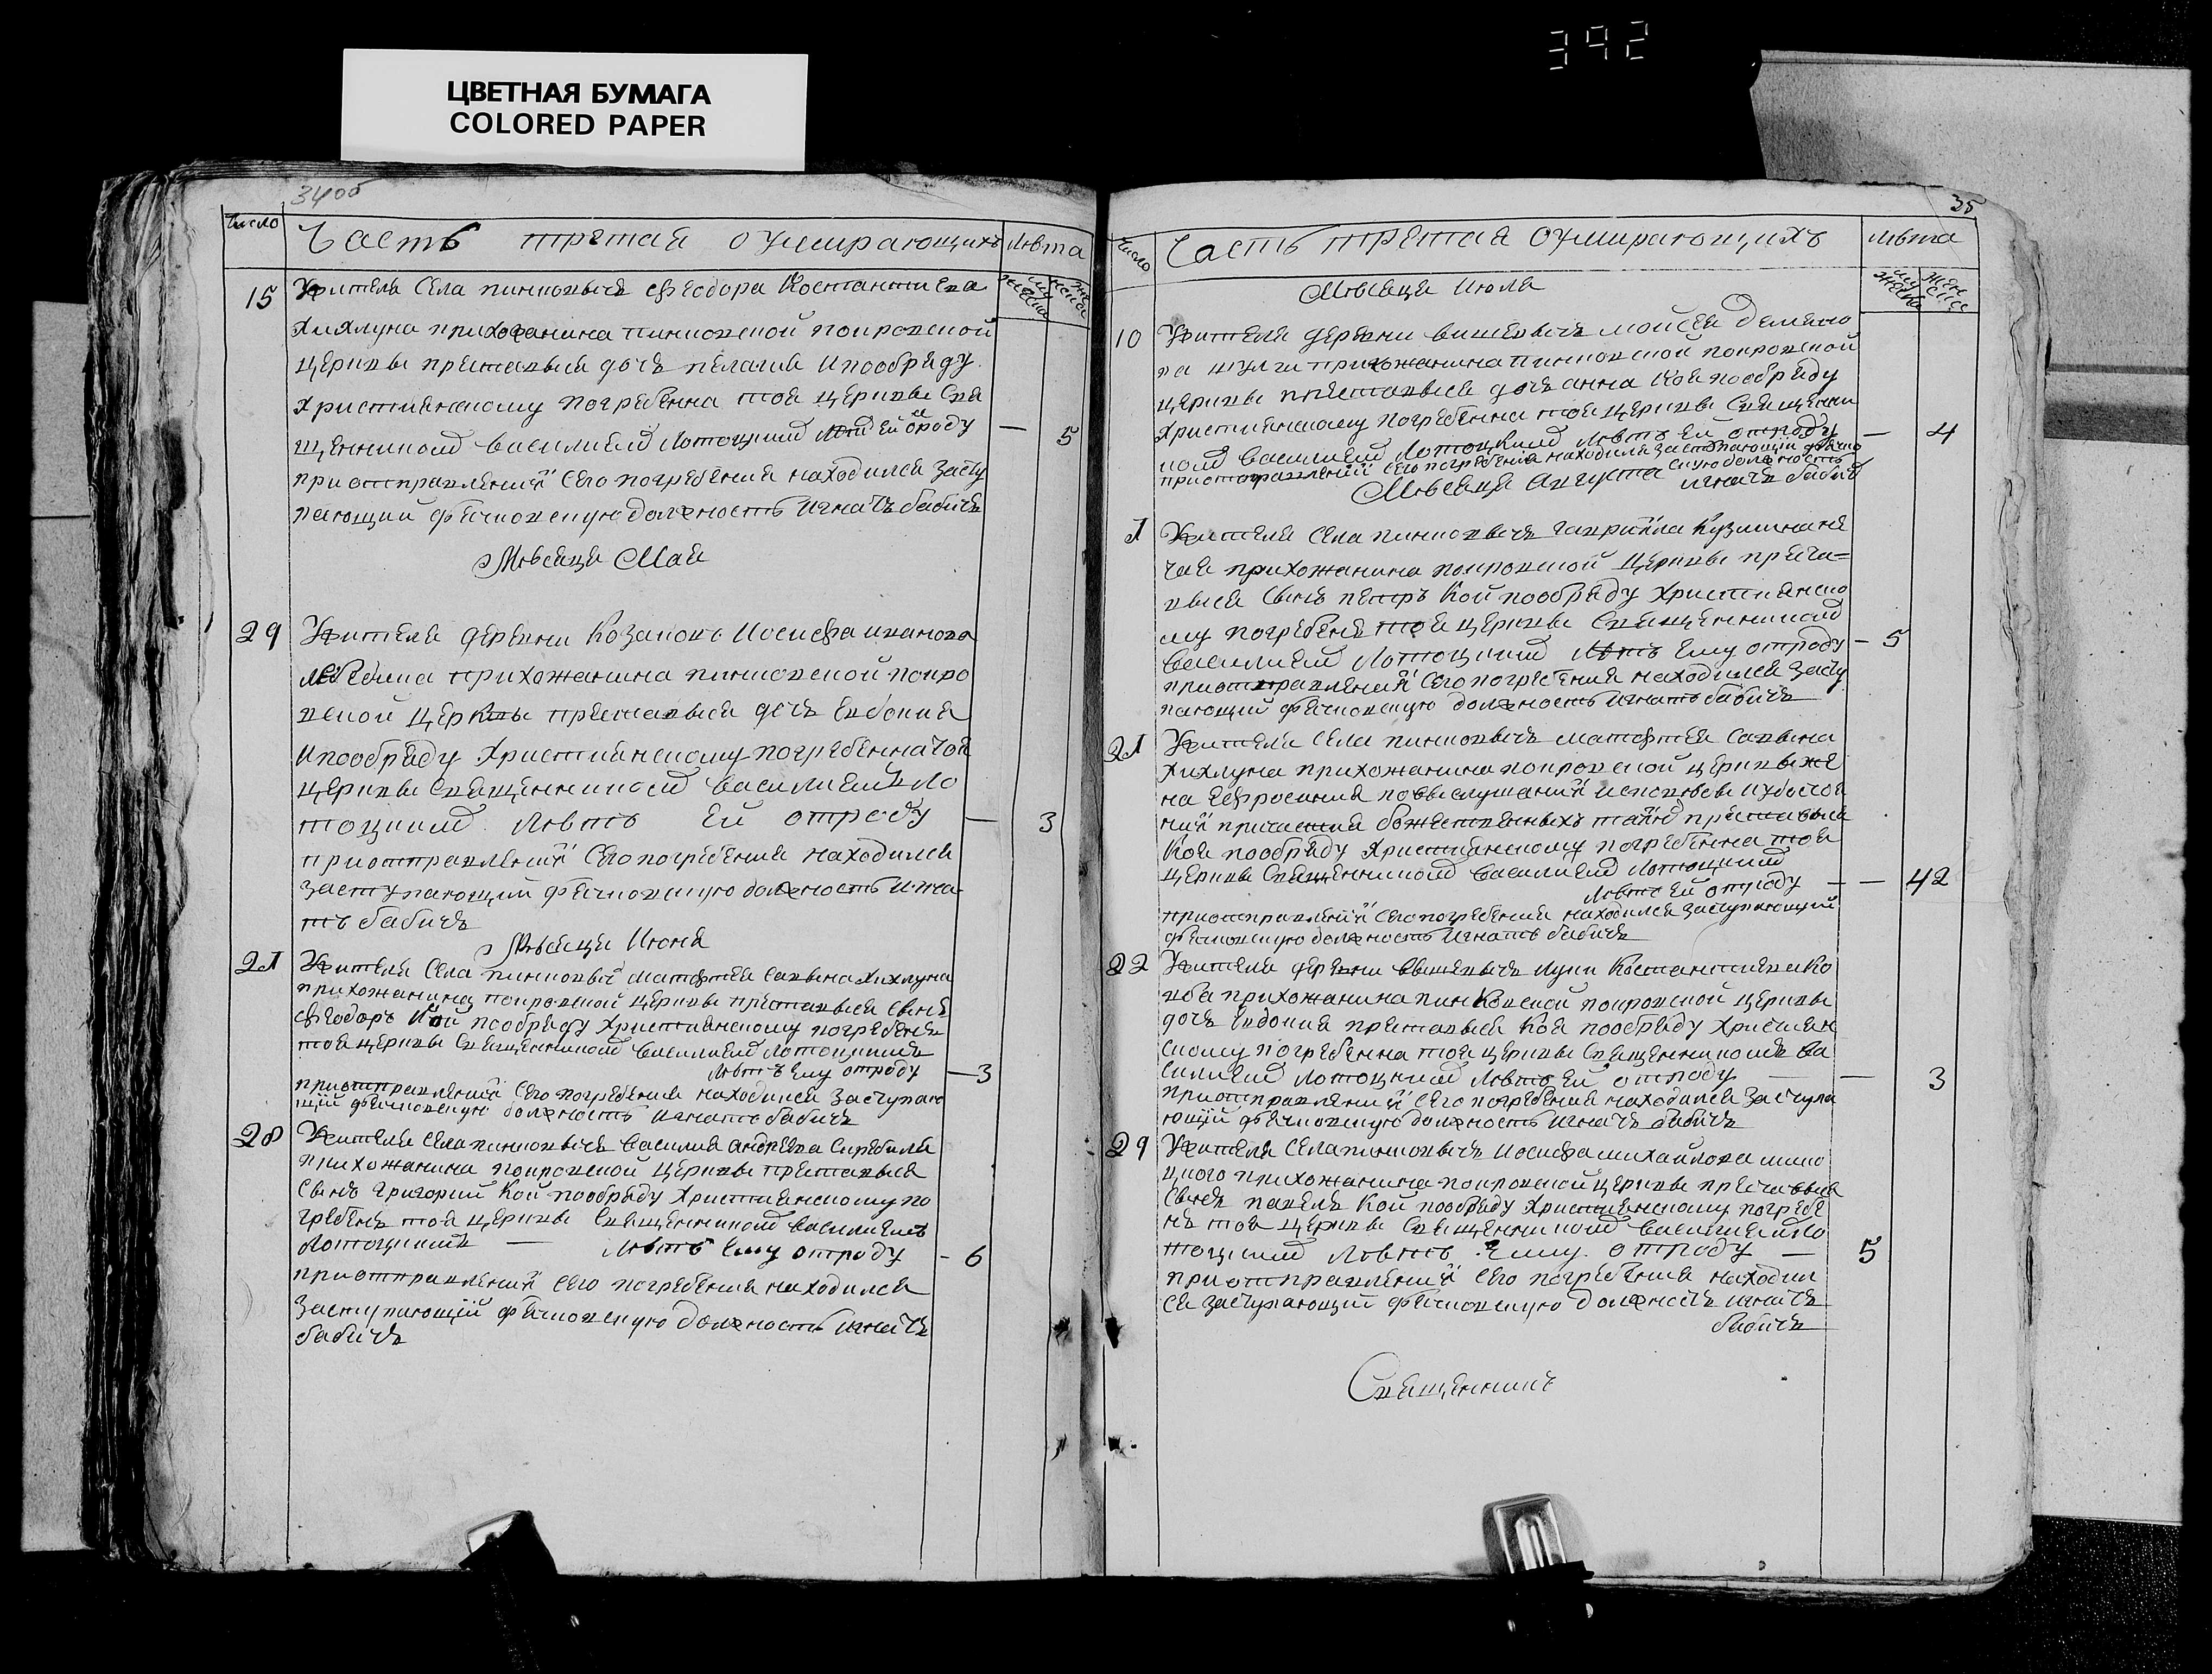 392
ЦВЕТНАЯ БУМАГА
COLORED PAPER
34об
Число
Часть третая о умирающихъ
Лѣта
15
Жителя Села пинковичь Феодора Костантинова
Хихлуна прихожанина пинковской покровской
церкви преставися дочь пелагия и пообряду
Християнскому погребенна тоя церкви Свя
щенникомъ василиемъ Лотоцкимъ ей ѿроду — 5
приотправлений сего погребения находился засту
пающий дячковскую должность Игнать бабичь
Мѣсяца Маи
29
Жителя деревни Козаковъ Иосифа иванова
прихожанина пинковской покро
вской церквы преставися дочь Евдокия
И пообряду Християнскому погребенна той
церкви Священникомъ василиемъ Ло
тоцкимъ Лѣтъ ей отроду — 3
приотправлений сего погребения находился
заступающий дячковскую должность Игна
тъ бабичь
Мѣсяца Июня
21
Жителя Села пинковичь матфтея савина Хихлуна
прихожанина покровской церкви преставися сынъ
Феодоръ Кой пообряду Християнскому погребенъ
тоя церкви Священникомъ василиемъ Лотоцкимъ
Лѣтъ ему отроду — 3
приотправлений сего погребения находился заступаю
щий дячковскую должность игнатъ бабичь
28
Жителя села пинковичь василия андреева
прихожанина покровской церкви преставися
Сынъ григорий Кой пообряду Християнскому по
гребенъ тоя церкви Священникомъ василиемъ
Лотоцкимъ — Лѣтъ ему отроду - 6
приотправлений сего погребения находился
заступающий дячковскую должность игнатъ
бабичь
35
Число
Часть третая о умирающихъ
Лѣта
Мѣсяца Июля
10
Жителя деревни вишевичь моисея демено
ва шулги прихожанина пинковской покровской
церкви преставися дочь анна Коя пообряду
Християнскому погребенна тоя церкви Священни
комъ василиемъ Лотоцкимъ Лѣтъ ей отроду — 4
приотправлений сего погребения находился заступающий дячко
вскую должность
игнатъ бабичь
Мѣсяца Августа
1
Жителя Села пинковичь гавриила Кузмина не
чая прихожанина покровской церкви преста=
вися Сынъ петръ Кой пообряду Християнско
му погребенъ тоя церкви Священникомъ
василиемъ Лотоцкимъ Лѣтъ ему отроду - 5
приотправлений сего погребения находился засту
пающий дячковскую должность игнатъ бабичь
21
Жителя Села пинковичь матфтея савина
Хихлуна прихожанина покровской церкви же
на Ефросиния повыслушаний исповѣди иудостое
ний причастия божественныхъ тайнъ преставися
Коя пообряду Християнскому погребенна тоя
церкви Священникомъ василиемъ Лотоцкимъ
Лѣтъ ей отроду — — 42
приотправлений сего погребения находился заступающий
дячковскую должность Игнатъ бабичь
22
Жителя деревни вишевичь Луки Костантинова Ко
вба прихожанина пинковской покровской церкви
дочь Евдокия преставися Коя пообряду Християн
скому погребенна тоя церкви Священникомъ ва
силиемъ Лотоцкимъ Лѣтъ ей отроду — 3
приотправлений сего погребения находился заступа
ющий дячковскую должность игнатъ бабичь
29
Жителя Села пинковичь иосифа михайлова
прихожанина покровской церкви преставися
Сынъ павелъ Кой пообряду Християнскому погребе
нъ тоя церкви Священникомъ василиемъ Ло
тоцкимъ Лѣтъ Ему отроду — 5
приотправлений сего погребения находил
ся заступающий дячковскую должность игнатъ
бабичь
Священникъ